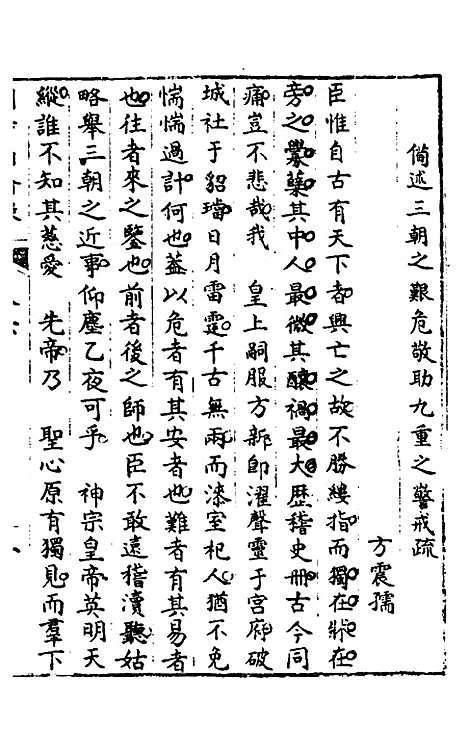 備述三朝之艱危敬助九重之警戒疏
方震孺
臣惟自古有天下者興亡之故不勝縷指而獨在牀在
旁之釁蘖其中人最微其釀禍最大歷稽史冊古今同
痛豈不悲哉我　皇上嗣服方新卽濯聲靈于宮府破
城社于貂璫日月雷霆千古無兩而漆室杞人猶不免
惴惴過計何也蓋以危者有其安者也難者有其易者
也往者來之鑒也前者後之師也臣不敢遠稽瀆聽姑
略舉三朝之近事仰塵乙夜可乎　神宗皇帝英明天
縱誰不知其慈愛　先帝乃　聖心原有獨見而羣下